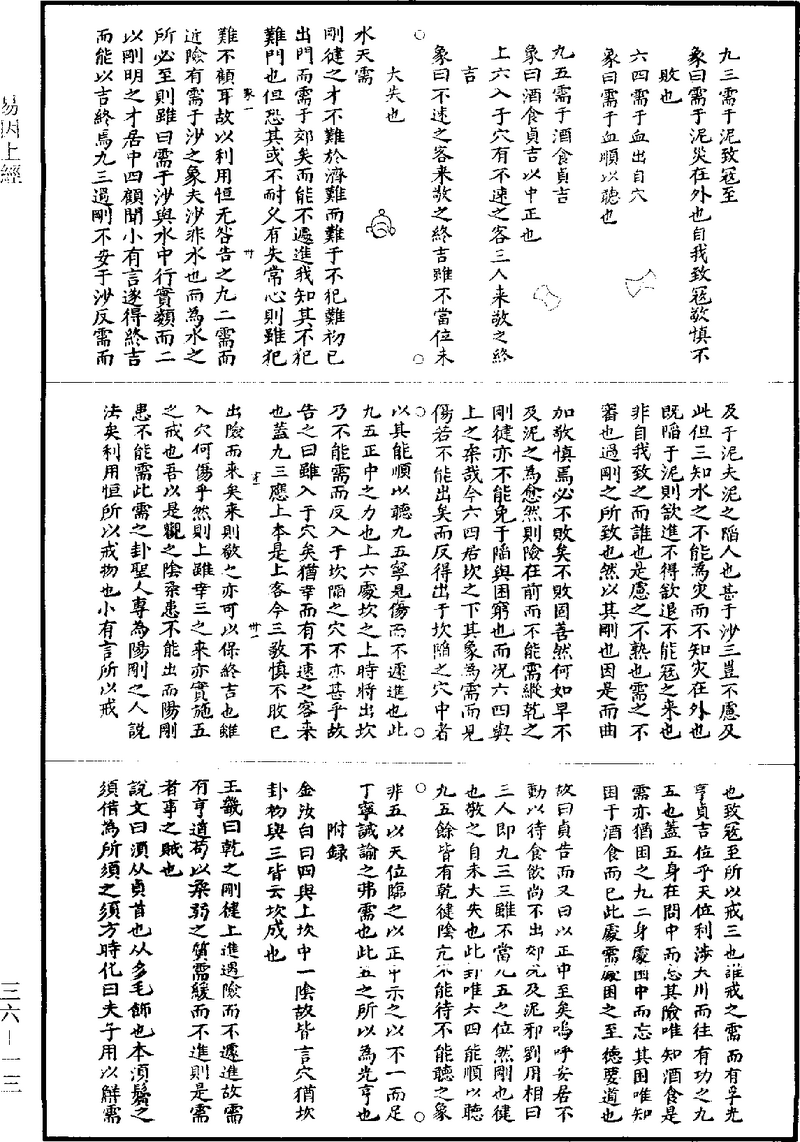 九三需于泥致寇至
象曰需于泥災在外也自我致寇敬慎不
敗也
六四需于血出自穴
象曰需于血順以聽也
九五需于酒食貞吉
象曰酒食貞吉以中正也
上六入于穴有不速之客三人来敬之終
吉
象曰不速之客来敬之終吉雖不當位未
大失也
水天需
剛健之才不難於濟難而難于不犯難初已
出門而需于郊矣而能不遽進我知其不犯
難門也但恐其或不耐久有失常心則雖犯
難不顧耳故以利用恒无咎告之九二需而
近險有需于沙之象夫沙非水也而為水之
所必至則雖曰需于沙與水中行實類而二
以剛明之才居中四顧聞小有言遂得終吉
而能以吉終焉九三過剛不安于沙反需而
及于泥夫泥之陷人也甚于沙三豈不慮及
此但三知水之不能為灾而不知灾在外也
既陷于泥則欲進不得欲退不能寇之来也
非自我致之而誰也是慮之不熟也需之不
審也過剛之所致也然以其剛也因是而曲
加敬慎焉必不敗矣不敗固善然何如早不
及泥之為愈然則險在前而不能需縱乾之
剛健亦不能免于陷與困窮也而况六四與
上之柔哉今六四居坎之下其象為需而見
傷若不能出矣而反得出于坎陷之穴中者
以其能順以聽九五寧見傷而不遽進也此
九五正中之力也上六處坎之上時將出坎
乃不能需而反入于坎陷之穴不亦甚乎故
告之曰雖入于穴矣猶幸而有不速之客来
也蓋九三應上本是上客今三敬慎不敗已
出險而来矣来則敬之亦可以保終吉也雖
入穴何傷乎然則上雖幸三之来亦實施五
之戒也吾以是觀之陰柔患不能出而陽剛
患不能需此需之卦聖人專為陽剛之人説
法矣利用恒所以戒物也小有言所以戒
也致寇至所以戒三也誰戒之需而有孚光
亨貞吉位乎天位利涉大川而往有功之九
五也蓋五身在問中而忘其險唯知酒食是
需亦猶困之九二身處困中而忘其困唯知
困于酒食而已此處需處困之至德要道也
故曰貞告而又曰以正中至矣嗚呼安居不
動以待食飲尚不出郊况及泥邪劉用相曰
三人即九三三雖不當九五之位然剛也健
也敬之自未大失也此卦唯六四能順以聽
九五餘皆有乾健陰亢不能待不能聽之象
非五以天位臨之以正中示之以不一而足
丁寧誡諭之弗需也此五之所以為光亨也
附録
金汝白曰四與上坎中一陰故皆言穴猶坎
卦物與三皆云坎成也
王畿曰乾之剛健上進遇險而不遽進故需
有亨道苟以柔弱之質需緩而不進則是需
者事之賊也
説文曰須从貞首也从多毛飾也本須鬢之
須借為所須之須方時化曰夫子用以解需
易因上經
三六—一三